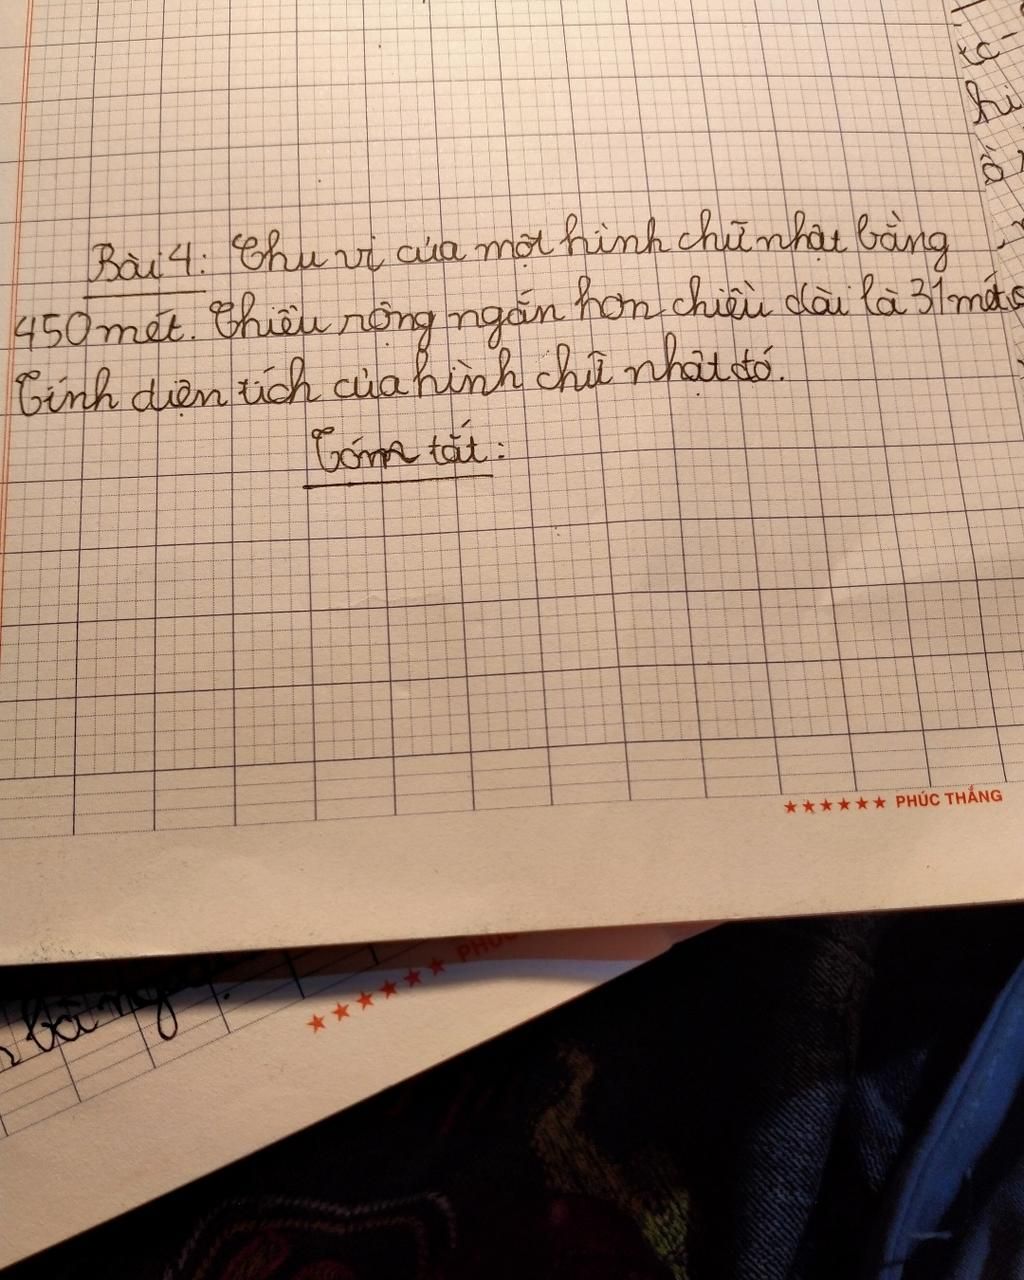 Bài 4: Chu vi của một hình chữ nhật bằng
450 mét. Chiều rộng ngắn hơn chiều dài là 31 mét.
Tính diện tích của hình chữ nhật đó.
Tóm tắt:
★★★★★★ PHÚC THẮNG
★★★★★★ PHÚC